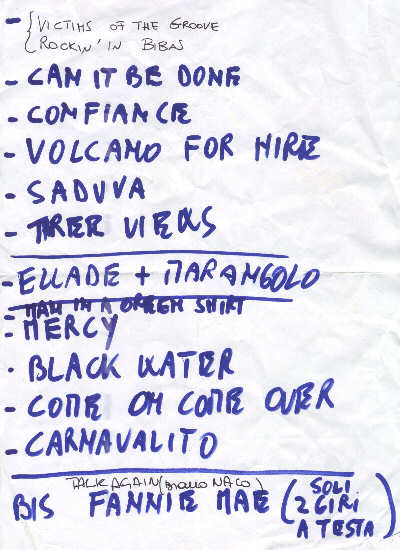 - { VICTIMS OF THE GROOVE
ROCKIN' IN BIBAS
- CAN IT BE DONE
- CONFIANCE
- VOLCANO FOR HIRE
- SADUVA
- TREE VIEWS
- ELLADE + MARANGOLO
- MAN IN A GREEN SHIRT
- MERCY
· BLACK WATER
- COME ON COME OVER
- CARNAVALITO
TALK AGAIN (BRANO NACO)
BIS FANNIE MAE (SOLI
2 GIRI
A TESTA)